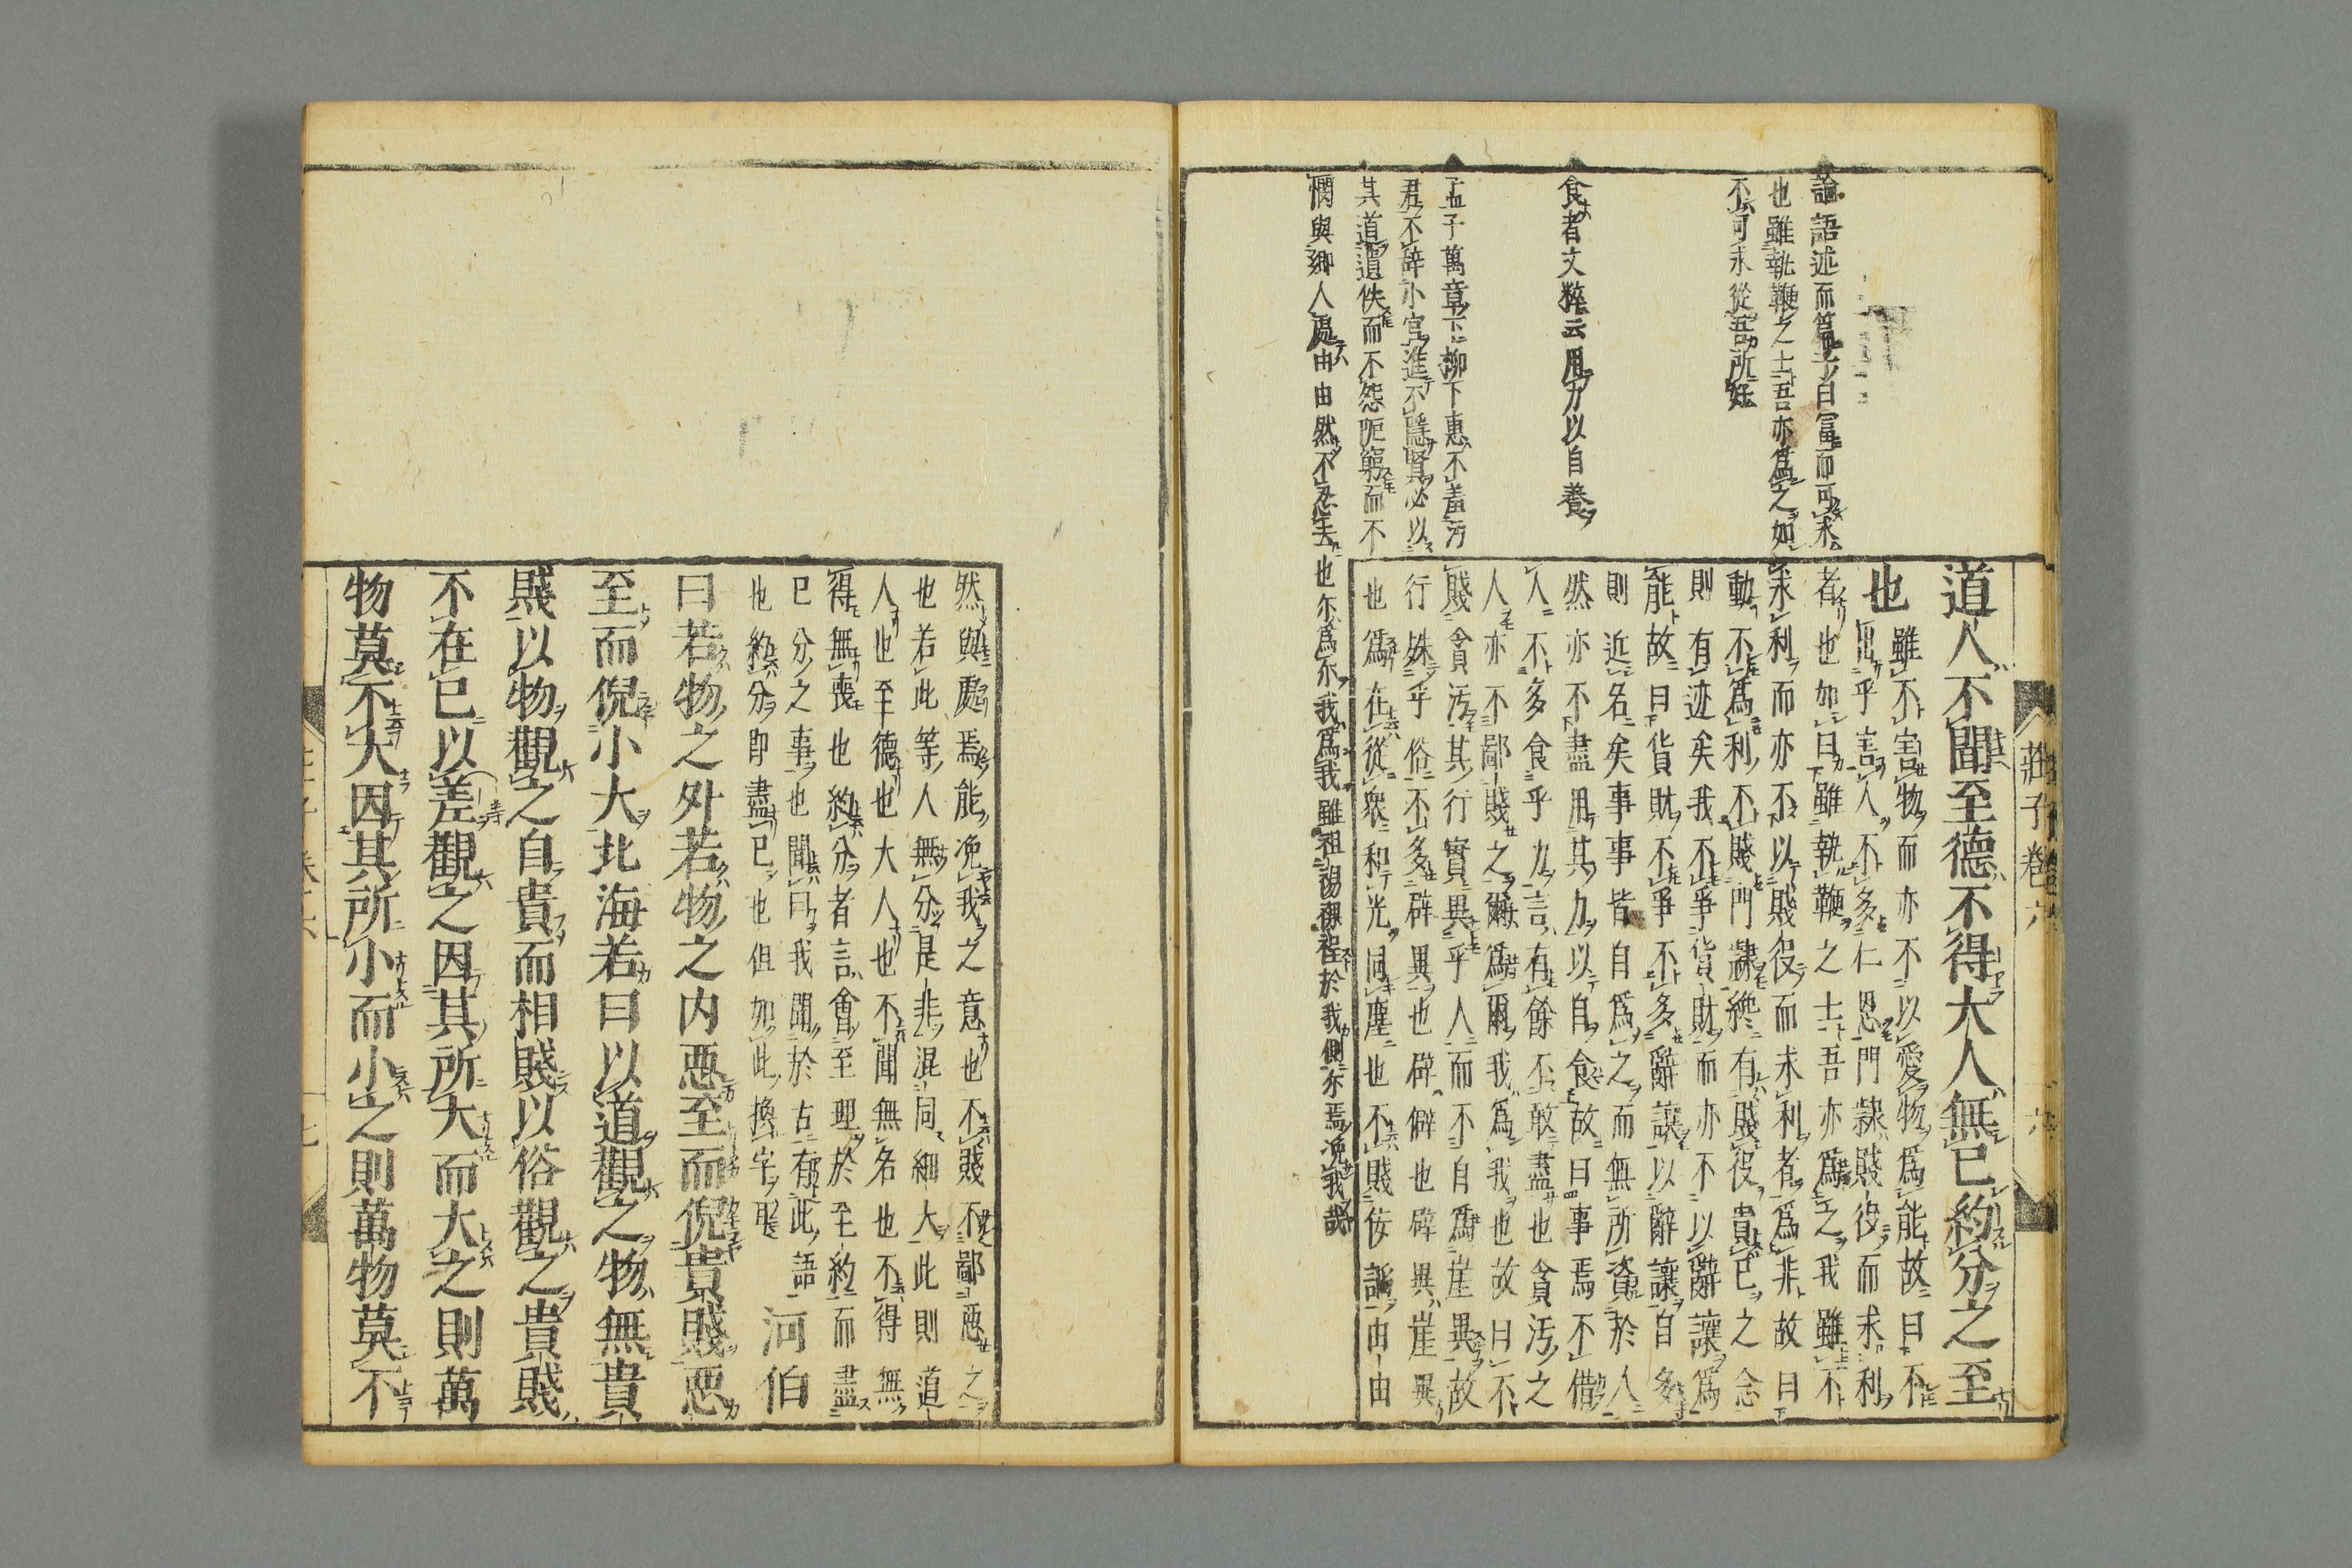 莊子卷六
六
論語述而篇子曰富而可求
也雖執鞭之士吾亦爲之如
不可求從吾所好
食者文粹云用力以自養
孟子萬章下柳下惠不羞汚
君不辭小官進不隱賢必以
其道遺佚而不怨阨窮而不
憫與鄉人處由由然不忍去也尓爲尓我爲我雖袒裼裸裎於我側尓焉浼我哉
道人不聞至德不得大人無已約分之至
也
雖不害物而亦不以愛物爲能故曰不
出乎害人不多仁恩門隷賤役而求利
者也如曰雖執鞭之士吾亦爲之我雖不
求利而亦不以賤役而求利者爲非故曰
動不爲利不賤門隷纔有賤役貴已之念
則有迹矣我不爭貨財而亦不以辭讓爲
能故曰貨財不爭不多辭讓以辭讓自多
則近名矣事事皆自爲之而無所資於人
然亦不盡用其力以自食故曰事焉不借
人不多食乎力言有餘不敢盡也貪汚之
人亦不鄙賤之爾爲爾我爲我也故曰不
賤貪汚其行實異乎人而不自爲崖異故
行殊乎俗不多辟異也辟僻也辟異崖異
也爲在從衆和光同塵也不賤佞諂由由
然與處焉能浼我之意也不賤不鄙惡之
也若此等人無分是非混同細大此則道
人也至德也大人也不聞無名也不得無
得無喪也約分者言會至理於至約而盡
已分之事也聞曰我聞於古有此語
也約分即盡已也但如此換字耳
河伯
曰若物之外若物之内惡至而倪貴賤惡
至而倪小大北海若曰以道觀之物無貴
賤以物觀之自貴而相賤以俗觀之貴賤
不在已以差觀之因其所大而大之則萬
物莫不大因其所小而小之則萬物莫不